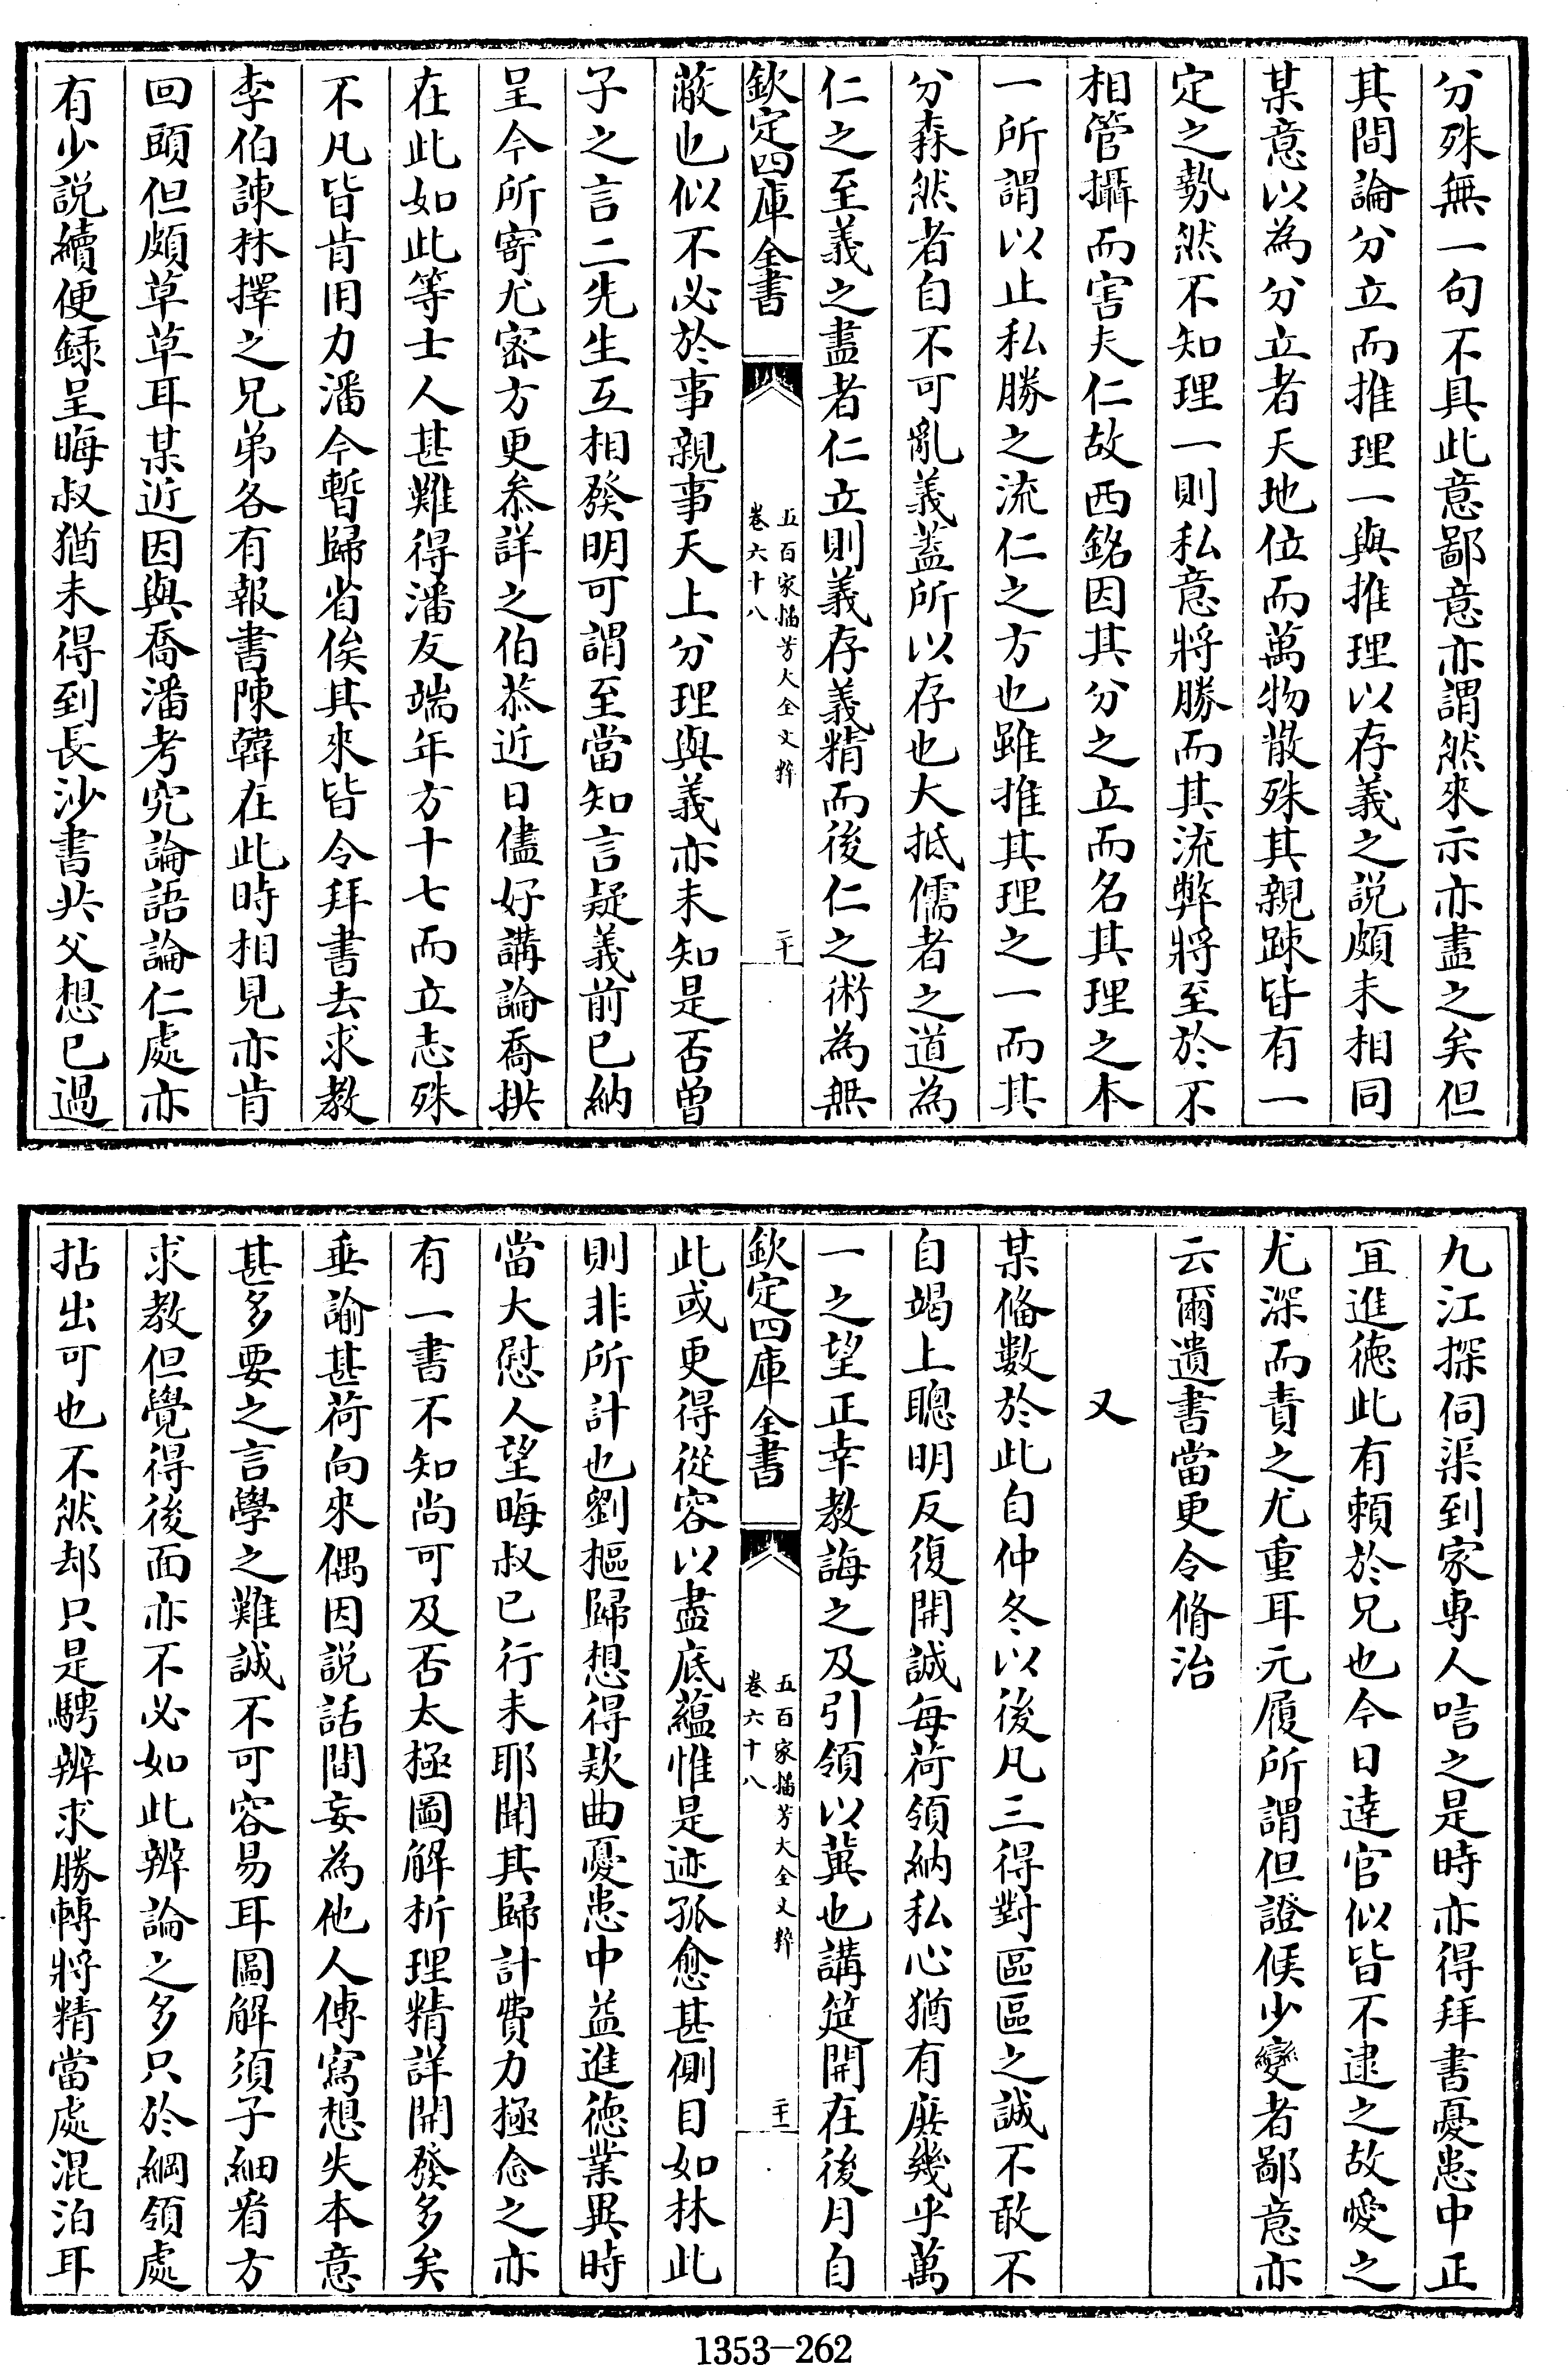 分殊無一句不具此意鄙意亦謂然來示亦盡之矣但
其間論分立而推理一與推理以存義之説頗未相同
某意以為分立者天地位而萬物散殊其親踈皆有一
定之勢然不知理一則私意將勝而其流弊將至於不
相管攝而害夫仁故西銘因其分之立而名其理之本
一所謂以止私勝之流仁之方也雖推其理之一而其
分森然者自不可亂義蓋所以存也大抵儒者之道為
仁之至義之盡者仁立則義存義精而後仁之術為無
欽定四庫全書
五百家播芳大全文粹
卷六十八
二十
蔽也似不必於事親事天上分理與義亦未知是否曾
子之言二先生互相發明可謂至當知言疑義前已納
呈今所寄尤宻方更叅詳之伯恭近日儘好講論喬拱
在此如此等士人甚難得潘友端年方十七而立志殊
不凡皆肯用力潘今暫歸省俟其來皆令拜書去求教
李伯諫林擇之兄弟各有報書陳韓在此時相見亦肯
回頭但頗草草耳某近因與喬潘考究論語論仁處亦
有少説續便録呈晦叔猶未得到長沙書共父想已過
九江探伺渠到家専人唁之是時亦得拜書憂患中正
宜進徳此有頼於兄也今日達官似皆不逮之故愛之
尤深而責之尤重耳元履所謂但證候少變者鄙意亦
云爾遺書當更令脩治
又
某備數於此自仲冬以後凡三得對區區之誠不敢不
自竭上聰明反復開誠每荷領納私心猶有庶幾乎萬
一之望正幸教誨之及引領以冀也講筵開在後月自
欽定四庫全書
五百家播芳大全文粹
卷六十八
二十一
此或更得從容以盡底藴惟是迹孤愈甚側目如林此
則非所計也劉摳歸想得欵曲憂患中益進徳業異時
當大慰人望晦叔已行未耶聞其歸計費力極念之亦
有一書不知尚可及否太極圖解析理精詳開發多矣
垂諭甚荷向來偶因説話間妄為他人傳寫想失本意
甚多要之言學之難誠不可容易耳圖解須子細㸔方
求教但覺得後面亦不必如此辨論之多只於綱領處
拈出可也不然却只是騁辨求勝轉將精當處混泊耳
1353-262